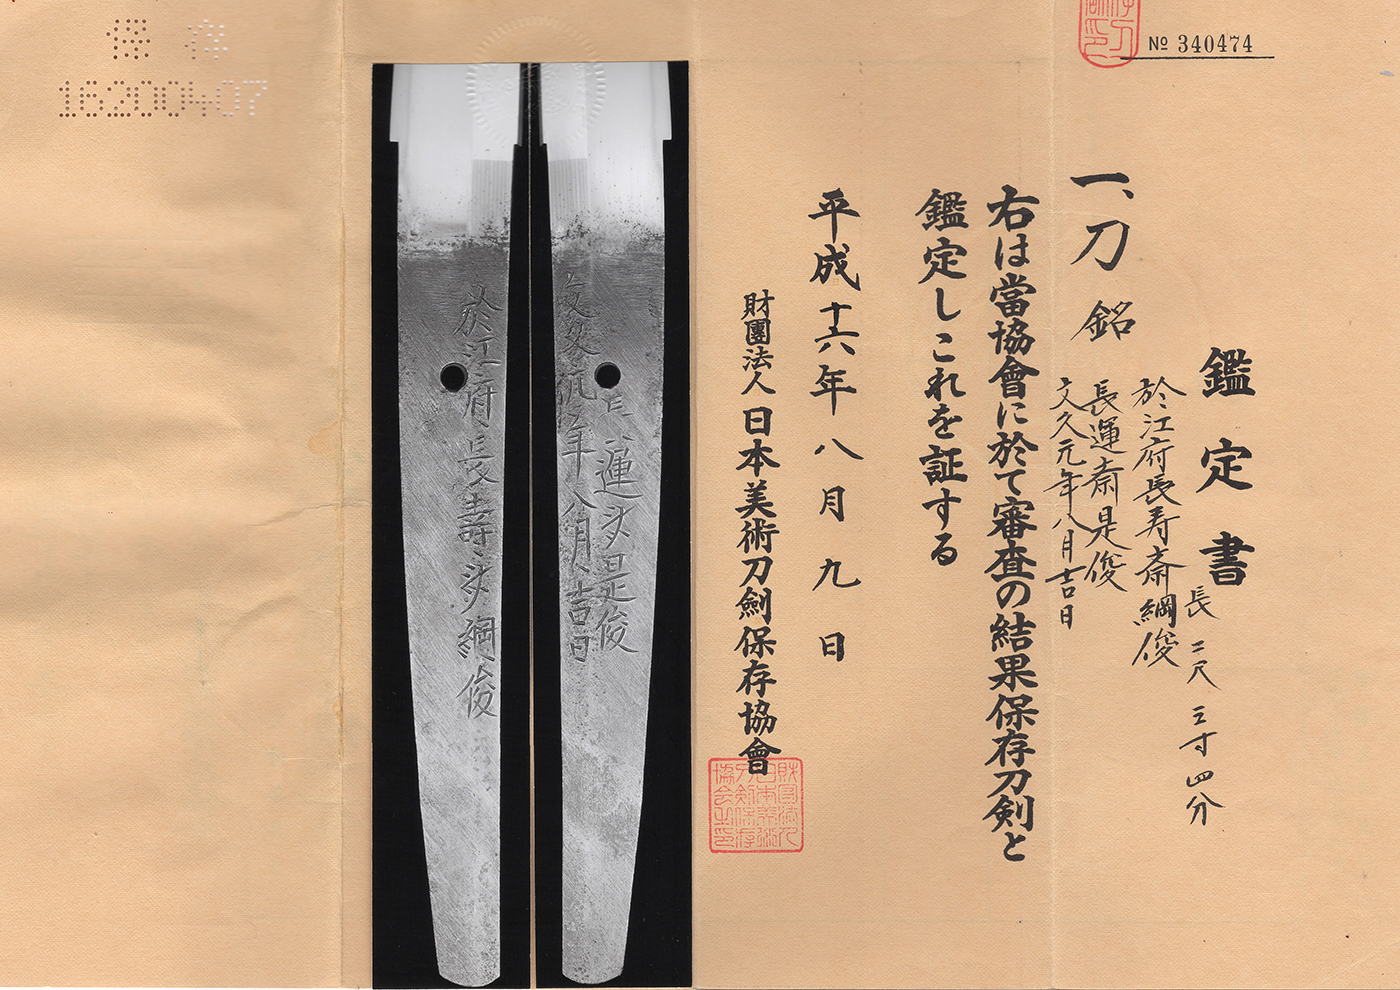 № 340474
鑑定書
長 二尺三寸四分
一、刀 銘
於江府長寿斎綱俊
長運斎是俊
文久元年八月吉日
右は當協會に於て審査の結果保存刀剣と
鑑定しこれを証する
平成十六年八月九日
財團法人日本美術刀劍保存協會
保存
16200407
於江府長壽斎綱俊
長運斎是俊
文久元年八月吉日